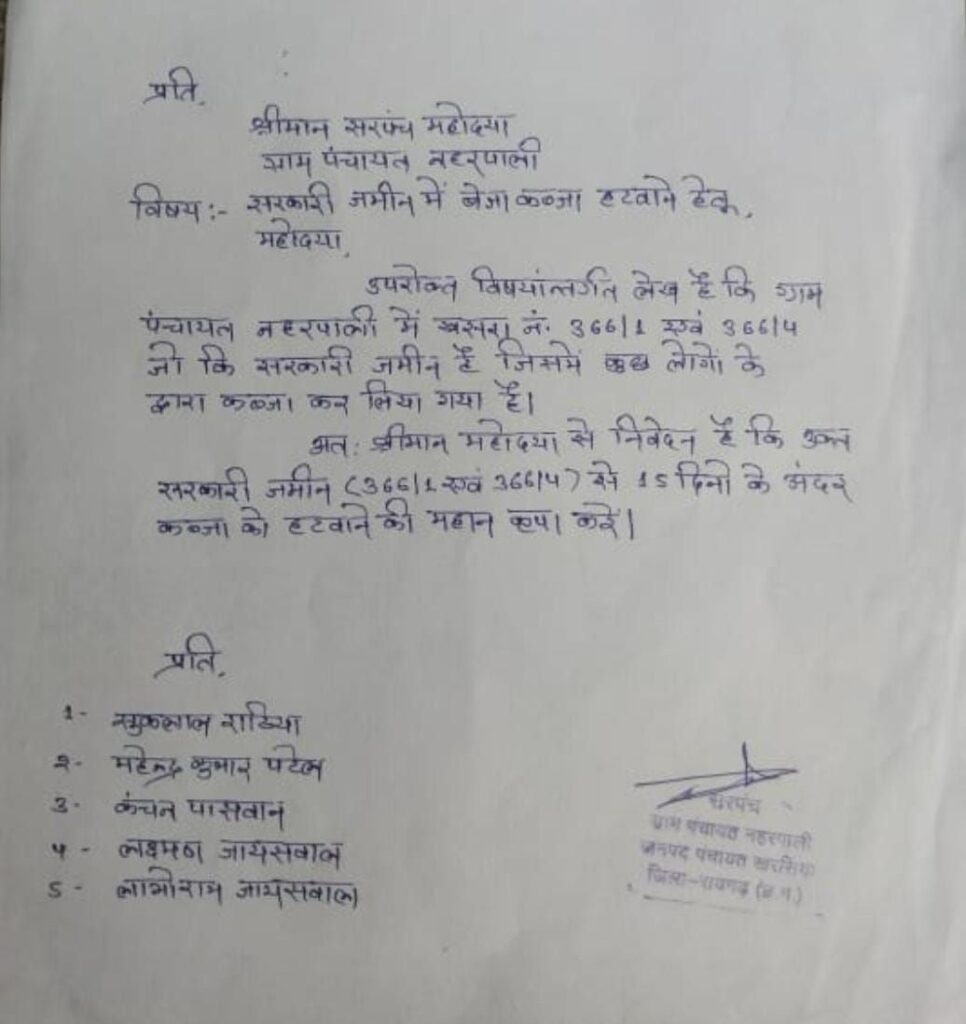 प्रति,
श्रीमान सरपंच महोदया
ग्राम पंचायत नहरपाली
विषय :- सरकारी जमीन में बेजा कब्जा हटवाने हेतू,
महोदया,
उपरोक्त विषयांतर्गत लेख है कि ग्राम
पंचायत नहरपाली में खसरा नं. 366/1 एवं 366/4
जो कि सरकारी जमीन है जिसमें कुछ लोगों के
द्वारा कब्जा कर लिया गया है।
अत: श्रीमान महोदया से निवेदन है कि उक्त
सरकारी जमीन (366/1 एवं 366/4) से 15 दिनों के अंदर
कब्जा को हटवाने की महान कृपा करें।
प्रति,
1- राठिया
2- महेन्द्र कुमार पटेल
3- कंचन पासवान
4- लक्ष्मण जायसवाल
5- लाभोराम जायसवाल
सरपंच
ग्राम पंचायत नहरपाली
जनपद पंचायत खरसिया
जिला-रायगढ़ (छ.ग.)